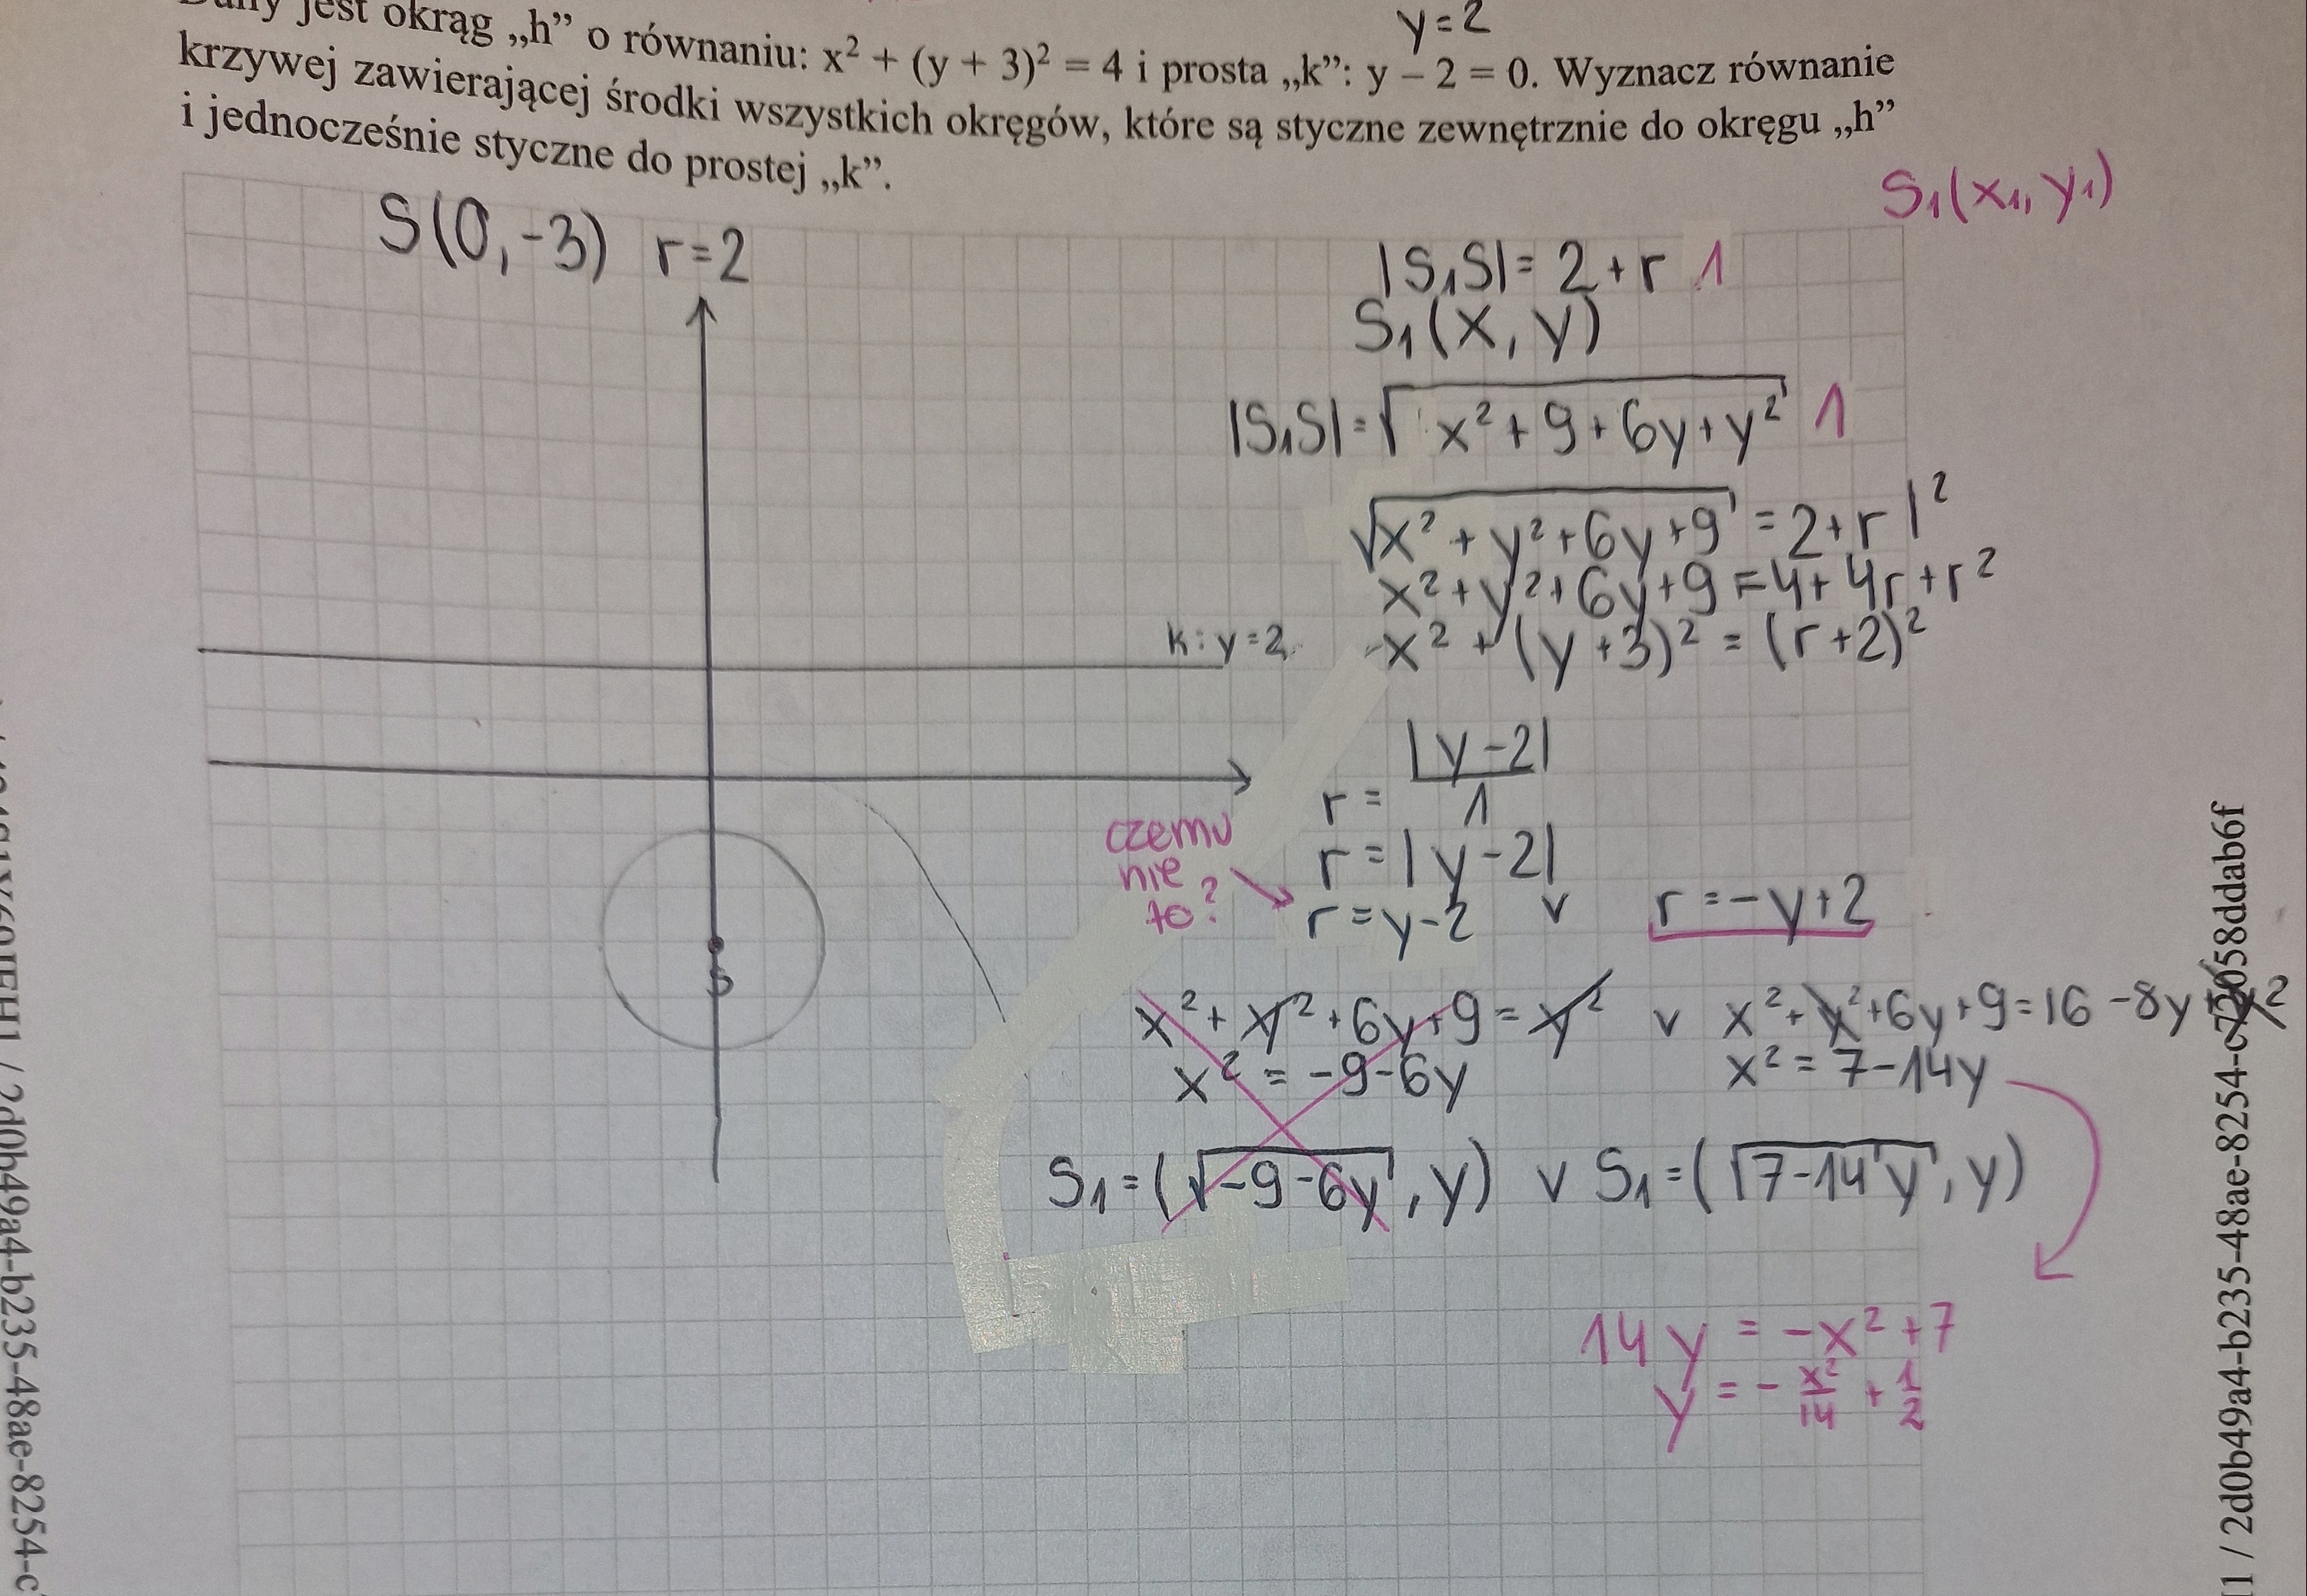 Dany jest okrąg „h” o równaniu: x² + (y + 3)² = 4 i prosta „k”: y – 2 = 0. Wyznacz równanie
y=2
krzywej zawierającej środki wszystkich okręgów, które są styczne zewnętrznie do okręgu „h”
i jednocześnie styczne do prostej „k”.
S₁(x₁, y₁)
S(0,-3) r=2
|S₁S|= 2+r 1
S₁(x, y)
|S₁S|=√(x²+9+6y+y²) 1
√(x²+y²+6y+9) = 2+r |²
x²+y²+6y+9=4+4r+r²
k: y=2
x²+(y+3)²=(r+2)²
r= |y-2|/1
czemu nie to?
r=|y-2|
r=y-2 v r=-y+2
S
x²+y²+6y+9=y² v x²+y²+6y+9=16-8y+y²
x²=-9-6y
x²=7-14y
S₁=(√(-9-6y), y) v S₁=(√(7-14y), y)
14y = -x²+7
y = -x²/14 + 1/2
2d0b49a4-b235-48ae-8254-c
1 / 2d0b49a4-b235-48ae-8254-c72058ddab6f